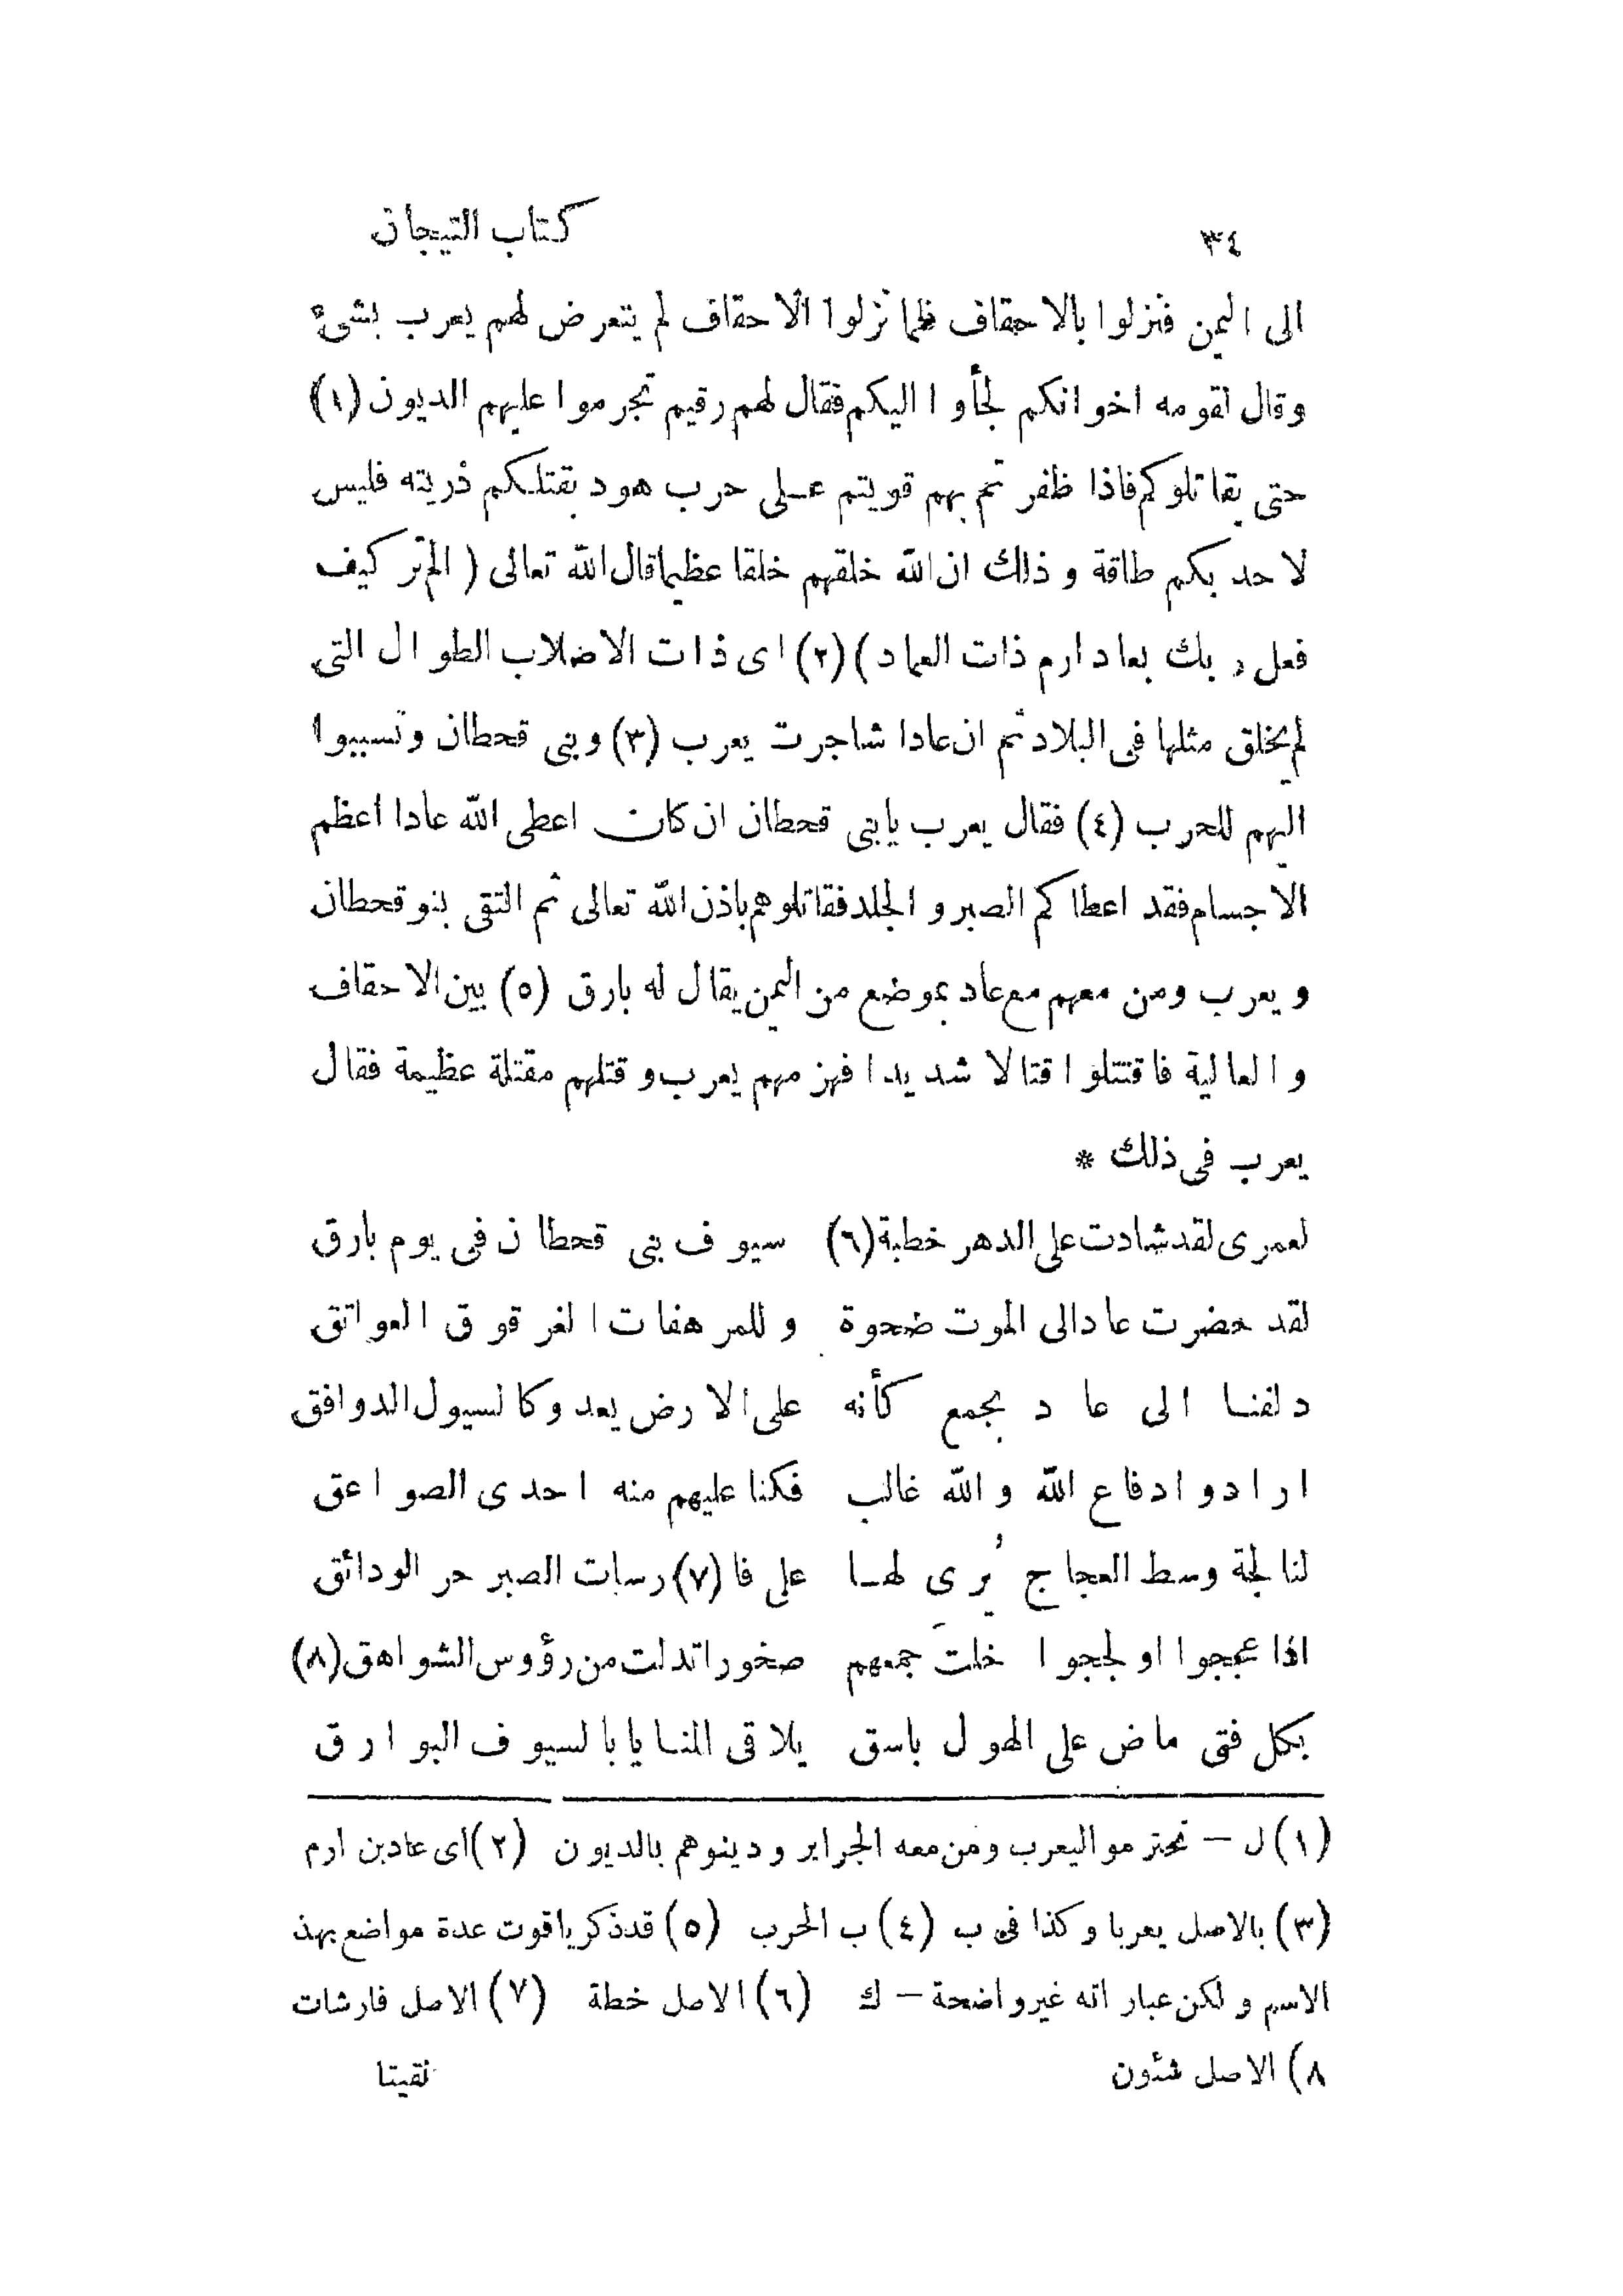 ٣٤ كتاب التيجان
الى اليمن فنزلوا بالاحقاف فلما نزلوا الاحقاف لم يتعرض لهم يعرب بشئ
وقال لقومه اخوانكم لجأوا اليكم فقال لهم رقيم تجرموا عليهم الديون (١)
حتى يقاتلوكم فاذا ظفرتم بهم قويتم على حرب هود بقتلكم ذريته فليس
لاحد بكم طاقة وذلك ان الله خلقهم خلقا عظيما قال الله تعالى (الم تر كيف
فعل ربك بعاد ارم ذات العماد) (٢) اى ذات الاضلاب الطوال التى
لم يخلق مثلها فى البلاد ثم ان عادا شاجرت يعرب (٣) وبنى قحطان وتسببوا
اليهم للحرب (٤) فقال يعرب يابنى قحطان ان كان اعطى الله عادا اعظم
الاجسام فقد اعطاكم الصبر والجلد فقاتلوهم باذن الله تعالى ثم التقى بنو قحطان
ويعرب ومن معهم مع عاد بموضع من اليمن يقال له بارق (٥) بين الاحقاف
والعالية فاقتتلوا قتالا شديدا فهزمهم يعرب وقتلهم مقتلة عظيمة فقال
يعرب فى ذلك *
لعمرى لقد شادت على الدهر خطبة (٦) سيوف بنى قحطان فى يوم بارق
لقد حضرت عاد الى الموت ضحوة وللمرهفات الغر قوق العواتق
دلفنا الى عاد بجمع كأنه على الارض يعدو كالسيول الدوافق
ارادوا دفاع الله والله غالب فكنا عليهم منه احدى الصواعق
لنا لجة وسط العجاج يُرى لها على فا (٧) رسات الصبر حر الودائق
اذا عججوا او لججوا خلتَ جمعهم صخورا تدلت من رؤوس الشواهق (٨)
بكل فتى ماض على الهول باسق يلاقى المنايا بالسيوف البوارق
(١) ل – تجترموا ليعرب ومن معه الجراير ودينوهم بالديون (٢) اى عاد بن ارم
(٣) بالاصل يعربا وكذا فى ب (٤) ب الحرب (٥) قد ذكر ياقوت عدة مواضع بهذ
الاسم ولكن عباراته غير واضحة – ك (٦) الاصل خطة (٧) الاصل فارشات
٨) الاصل شئون نقيتا